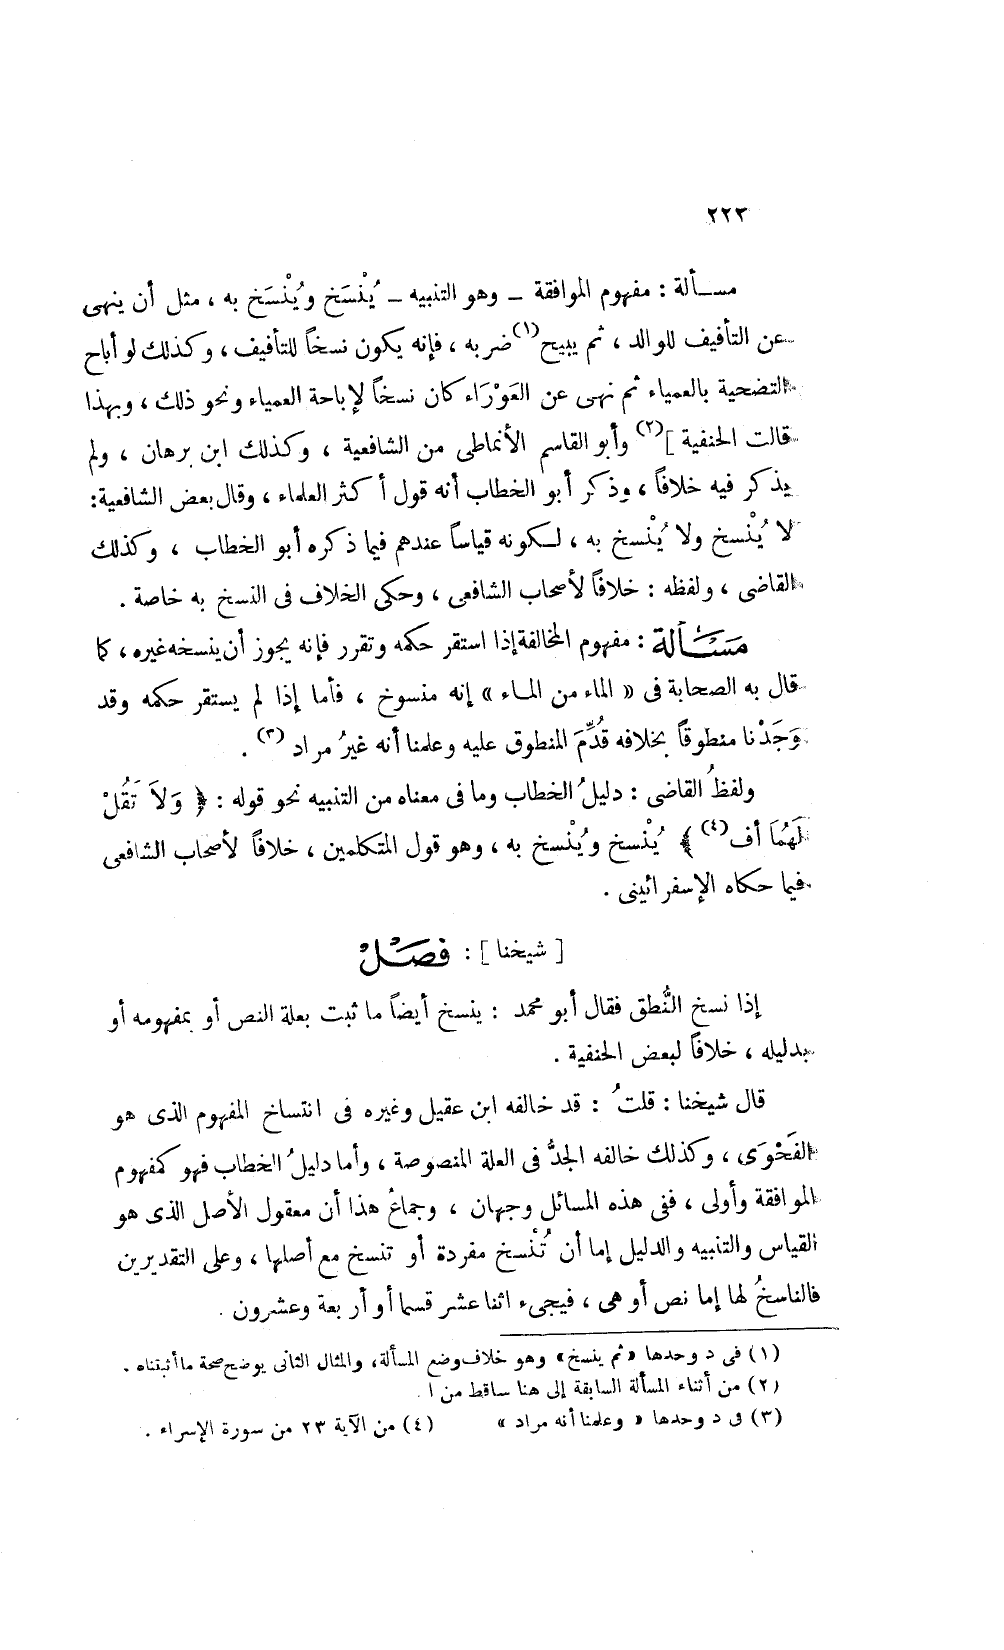 ٢٢٣
مسألة : مفهوم الموافقة – وهو التنبيه – يُنْسَخ ويُنْسَخ به ، مثل أن ينهى
عن التأفيف للوالد ، ثم يبيح(١) ضربه ، فإنه يكون نسخاً للتأفيف ، وكذلك لو أباح
التضحية بالعمياء ثم نهى عن العَوْرَاء كان نسخاً لإباحة العمياء ونحو ذلك ، وبهذا
قالت الحنفية ](٢) وأبو القاسم الأنماطى من الشافعية ، وكذلك ابن برهان ، ولم
يذكر فيه خلافاً ، وذكر أبو الخطاب أنه قول أكثر العلماء ، وقال بعض الشافعية:
لا يُنْسخ ولا يُنْسخ به ، لكونه قياساً عندهم فيما ذكره أبو الخطاب ، وكذلك
القاضى ، ولفظه : خلافاً لأصحاب الشافعى ، وحكى الخلاف فى النسخ به خاصة .
مَسْـَٔالة : مفهوم المخالفة إذا استقر حكمه وتقرر فإنه يجوز أن ينسخه غيره ، كما
قال به الصحابة فى « الماء من الماء » إنه منسوخ ، فأما إذا لم يستقر حكمه وقد
وَجَدْنا منطوقاً بخلافه قُدِّمَ المنطوق عليه وعلمنا أنه غيرُ مراد (٣) .
ولفظُ القاضى : دليلُ الخطاب وما فى معناه من التنبيه نحو قوله : ﴿ وَلاَ تَقُلْ
لَهُمَا أف(٤) ﴾ يُنْسخ ويُنْسخ به ، وهو قول المتكلمين ، خلافاً لأصحاب الشافعى
فيما حكاه الإسفرائينى .
[ شيخنا ] : فَصْلٌ
إذا نسخ النُّطق فقال أبو محمد : ينسخ أيضاً ما ثبت بعلة النص أو بمفهومه أو
بدليله ، خلافاً لبعض الحنفية .
قال شيخنا : قلتُ : قد خالفه ابن عقيل وغيره فى انتساخ المفهوم الذى هو
الفَحْوَى ، وكذلك خالفه الجدُّ فى العلة المنصوصة ، وأما دليلُ الخطاب فهو كمفهوم
الموافقة وأولى ، ففى هذه المسائل وجهان ، وجماعُ هذا أن معقول الأصل الذى هو
القياس والتنبيه والدليل إما أن تُنْسخ مفردة أو تنسخ مع أصلها ، وعلى التقديرين
فالناسخُ لها إما نص أو هى ، فيجىء اثنا عشر قسما أو أربعة وعشرون .
(١) فى د وحدها « ثم ينسخ » وهو خلاف وضع المسألة، والمثال الثانى يوضح صحة ما أثبتناه .
(٢) من أثناء المسألة السابقة إلى هنا ساقط من ا .
(٣) فى د وحدها « وعلمنا أنه مراد » (٤) من الآية ٢٣ من سورة الإسراء .